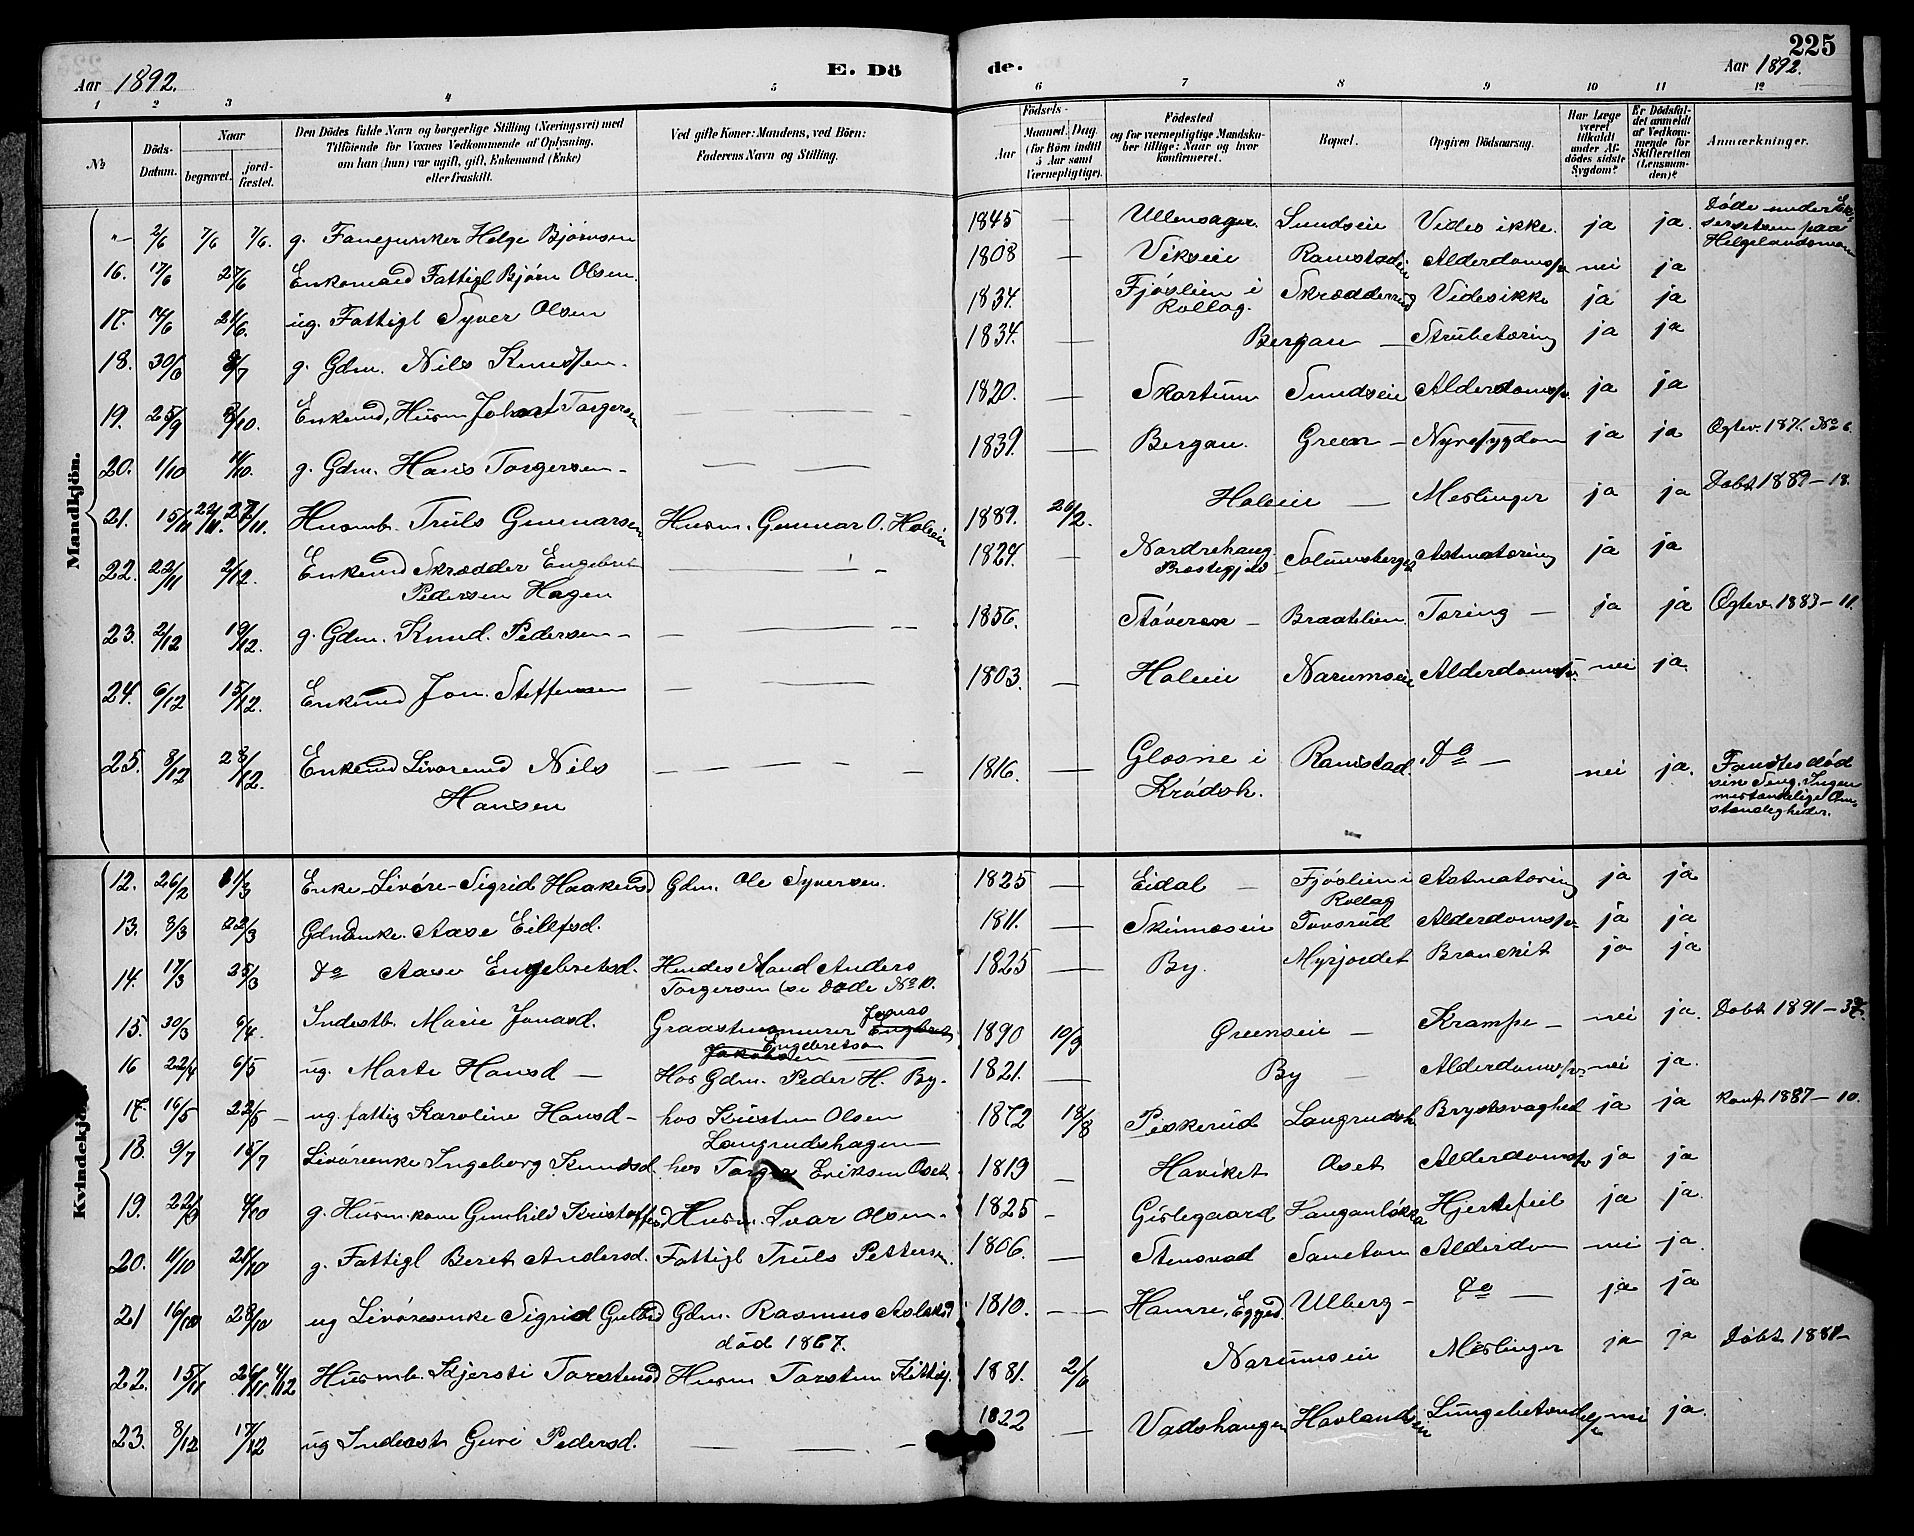 225
Aar 1892. E. Dö
de. Aar 1892.
1 2 3 4 5 6 7 8 9 10 11 12
№ Döds-Datum. Naar begravet. jordfæstet. Den Dödes fulde Navn og borgerlige Stilling (Næringsvei) med Tilföiende for Voxnes Vedkommende af Oplysning, om han (hun) var ugift, gift, Enkemand (Enke) eller fraskilt. Ved gifte Koner: Mandens, ved Börn: Faderens Navn og Stilling. Födsels- Aar Maaned. Dag. (for Börn indtil 5 Aar samt Værnepligtige). Födested og for værnepligtige Mandskaber tillige: Naar og hvor konfirmeret. Bopæl. Opgiven Dödsaarsag. Har Læge været tilkaldt under Afdödes sidste Sygdom? Er Dödsfaldet anmeldt af Vedkommende for Skifteretten (Lensmanden)? Anmærkninger.
Mandkjön.
"- 2/6 7/6 7/6. g. Fanejunker Helge Björnsen 1845 — Ullensager Sundseie Vides ikke. ja ja. Døde under Exsersetsen paa Helgelandsmoen
16. 17/6 27/6 Enkemand Fattigl Bjørn Olsen. 1808 — Vikseie Ramstadeie Alderdomssv. nei ja
17. 14/6 21/6. ug. Fattigl Syver Olsen 1834. — Fjøslien i Rollag. Skrædderrud Vides ikke ja ja
18. 30/6 8/7 g. Gdm. Nils Knudsen. 1834. — Bergan — Strubetæring ja ja
19. 25/9 2/10. Enkemd, Husm Johan Torgersen — — — 1820. — Skartum Sundseie Alderdomssv. ja ja
20. 1/10 11/10. g. Gdm. Hans Torgersen - — — 1839. — Bergan. Green — Nyresygdom ja ja Ægtev. 1871. No 6.
21. 15/11 22/11. 27/11. Husmb. Truls Gunnarsen Husm. Gunnar O. Holeie 1889. 26/2. Holeie — Meslinger ja ja Døbt 1889 - 18.
22. 22/11 2/12. Enkemd Skrædder Engebret Pedersen Hagen — — — 1824. — Nordrehaug Præstegjeld Solumsberget Astmatæring ja ja
23. 2/12 19/12. g. Gdm. Knud. Pedersen - — — — 1856. Støveren - Braatelien. Tæring — ja ja Ægtev. 1883 - 11.
24. 6/12 15/12. Enkemd Jon. Steffensen — — — 1803. — Holeie Narumseie Alderdomssv. nei ja.
25. 8/12 23/12. Enkemd Livøremd Nils Hansen — — — — 1816. — Glesne i Krødsh. Ramstad. do — nei ja. Fandtes død i sin Seng. Ingen mistænkelige Omstændigheder.
Kvindekjön.
12. 26/2 11/3 Enke Livøre - Sigrid Haakensd Gdm. Ole Syversen. 1825 — Eidal — Fjøslien i Rollag Astmatæring ja ja
13. 8/3 22/3 Gdmdenke. Aase Eilefsd. 1811. — Skinnæseie Tovsrud Alderdomssv. ja ja
14. 17/3 25/3 do Aase Engebretsd. Hendes Mand Anders Torgersen (se Døde No 10. 1825 — By. Myrjordet Bronchit ja ja
15. 30/3 6/4. Inderstb. Marie Jonasd. Graastensmurer Jonas Engebretsen 1890 10/9 Greenseie — Krampe — nei ja. Døbt 1891 - 37.
16 22/4 6/5 ug. Marte Hansd — Hos Gdm. Peder H. By. 1821. — By — Alderdomssv. nei ja.
17. 16/5 22/5 — ug. fattig Karoline Hansd - hos Kristen Olsen Langrudshagen 1872 18/8 Peskerud Langrudsh. Brystsvaghed ja ja Konf. 1887 - 10.
18. 9/7 15/7 Livøreenke Ingeborg Knudsd. hos Torger Eriksen Oset 1819 — Haviket Oset Alderdomssv ja ja
19. 22/9 4/10 g. Husm.kone Gunhild Kristoffersd Husm. Ivar Olsen. 1825 - Gislegaard Hauganløkka Hjertefeil ja ja.
20. 11/10 21/10 g. Fattigl Beret Andersd. Fattigl Truls Pettersen 1806. — Stensvad Sanetan Alderdom nei ja.
21 16/10 28/10 ug Livøresenke Sigrid Gulbd Gdm. Rasmus Aslaksd død 1867. 1810. — Hamre, Eggeda Ulberg - do — ja ja
22. 15/11 26/11. 4/12 Husmb. Kjersti Torstensd Husm Torsten Kittilj. 1881. 2/6 Narumseie Meslinger ja ja Døbt 1881 -
23. 8/12 17/12 ug Inderst Guri Pedersd. — — - 1822 — Vadshaugen Havlandseie Lungebetændelse nei ja.